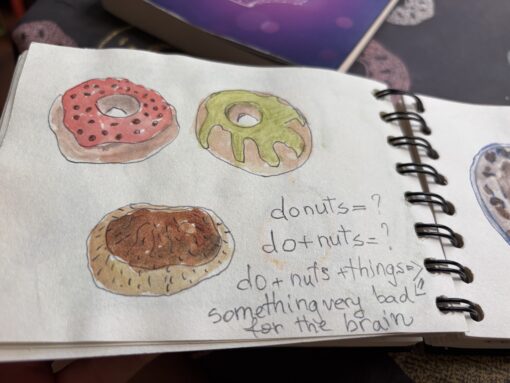 donuts=?
do+nuts=?
do+nuts+things=>
something very bad
for the brain